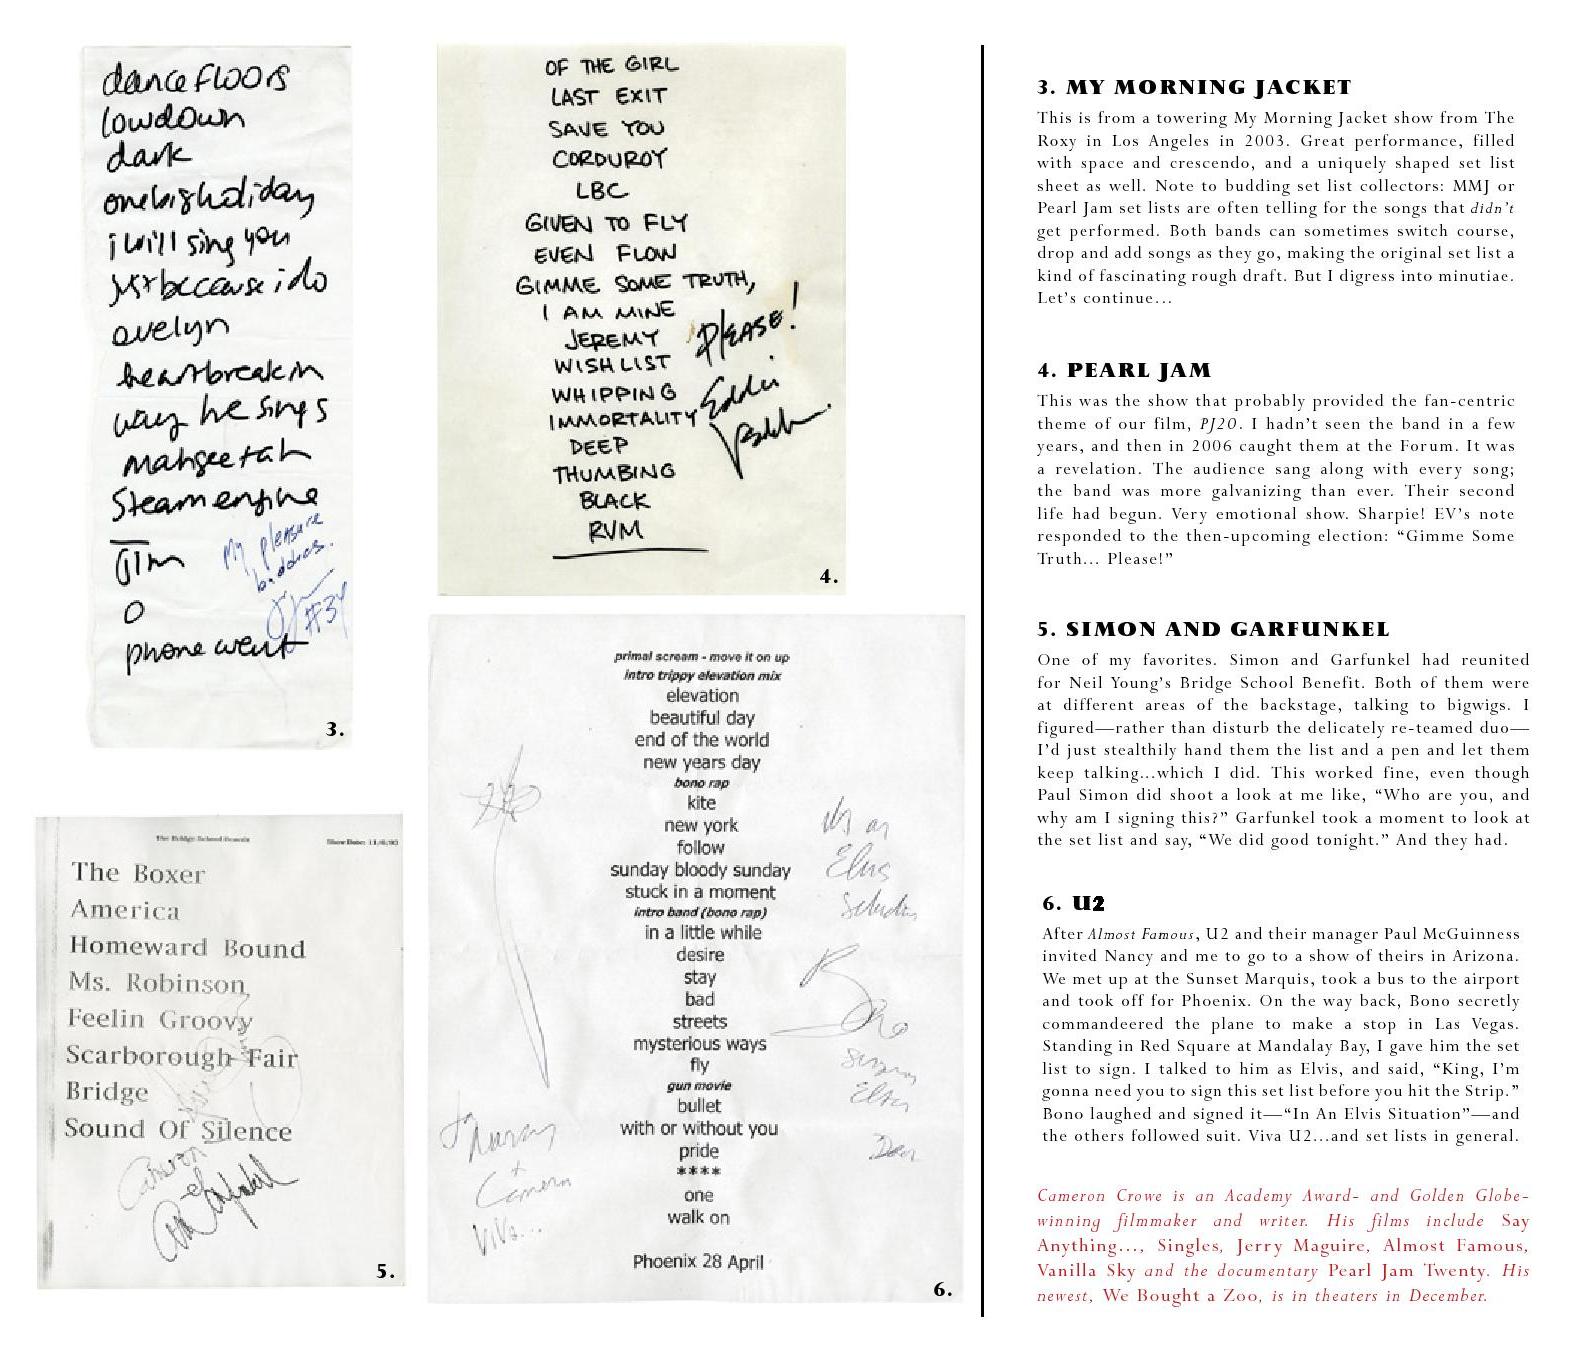 dancefloors
lowdown
dark
onebigholiday
i will sing you
justbecause i do
evelyn
heartbreakin
way he sings
mahgeetah
Steam engine
O
phone went
My pleasure
#34
3.
OF THE GIRL
LAST EXIT
SAVE YOU
CORDUROY
LBC
GIVEN TO FLY
EVEN FLOW
GIMME SOME TRUTH,
I AM MINE
JEREMY
PLEASE!
WISHLIST
WHIPPING
IMMORTALITY
DEEP
THUMBING
BLACK
RVM
Eddie
4.
The Bridge School Benefit
The Boxer
America
Homeward Bound
Ms. Robinson
Feelin Groovy
Scarborough Fair
Bridge
Sound Of Silence
Cameron
Art Garfunkel
5.
primal scream - move it on up
intro trippy elevation mix
elevation
beautiful day
end of the world
new years day
bono rap
kite
new york
follow
sunday bloody sunday
stuck in a moment
intro band (bono rap)
in a little while
desire
stay
bad
streets
mysterious ways
fly
gun movie
bullet
with or without you
pride
****
one
walk on
Phoenix 28 April
Elvis
Bono
Cameron
Viva...
6.
3. MY MORNING JACKET
This is from a towering My Morning Jacket show from The
Roxy in Los Angeles in 2003. Great performance, filled
with space and crescendo, and a uniquely shaped set list
sheet as well. Note to budding set list collectors: MMJ or
Pearl Jam set lists are often telling for the songs that didn't
get performed. Both bands can sometimes switch course,
drop and add songs as they go, making the original set list a
kind of fascinating rough draft. But I digress into minutiae.
Let's continue...
4. PEARL JAM
This was the show that probably provided the fan-centric
theme of our film, PJ20. I hadn't seen the band in a few
years, and then in 2006 caught them at the Forum. It was
a revelation. The audience sang along with every song;
the band was more galvanizing than ever. Their second
life had begun. Very emotional show. Sharpie! EV's note
responded to the then-upcoming election: “Gimme Some
Truth... Please!”
5. SIMON AND GARFUNKEL
One of my favorites. Simon and Garfunkel had reunited
for Neil Young's Bridge School Benefit. Both of them were
at different areas of the backstage, talking to bigwigs. I
figured—rather than disturb the delicately re-teamed duo—
I'd just stealthily hand them the list and a pen and let them
keep talking...which I did. This worked fine, even though
Paul Simon did shoot a look at me like, “Who are you, and
why am I signing this?” Garfunkel took a moment to look at
the set list and say, “We did good tonight.” And they had.
6. U2
After Almost Famous, U2 and their manager Paul McGuinness
invited Nancy and me to go to a show of theirs in Arizona.
We met up at the Sunset Marquis, took a bus to the airport
and took off for Phoenix. On the way back, Bono secretly
commandeered the plane to make a stop in Las Vegas.
Standing in Red Square at Mandalay Bay, I gave him the set
list to sign. I talked to him as Elvis, and said, “King, I'm
gonna need you to sign this set list before you hit the Strip.”
Bono laughed and signed it—“In An Elvis Situation”—and
the others followed suit. Viva U2...and set lists in general.
Cameron Crowe is an Academy Award- and Golden Globe-
winning filmmaker and writer. His films include Say
Anything..., Singles, Jerry Maguire, Almost Famous,
Vanilla Sky and the documentary Pearl Jam Twenty. His
newest, We Bought a Zoo, is in theaters in December.